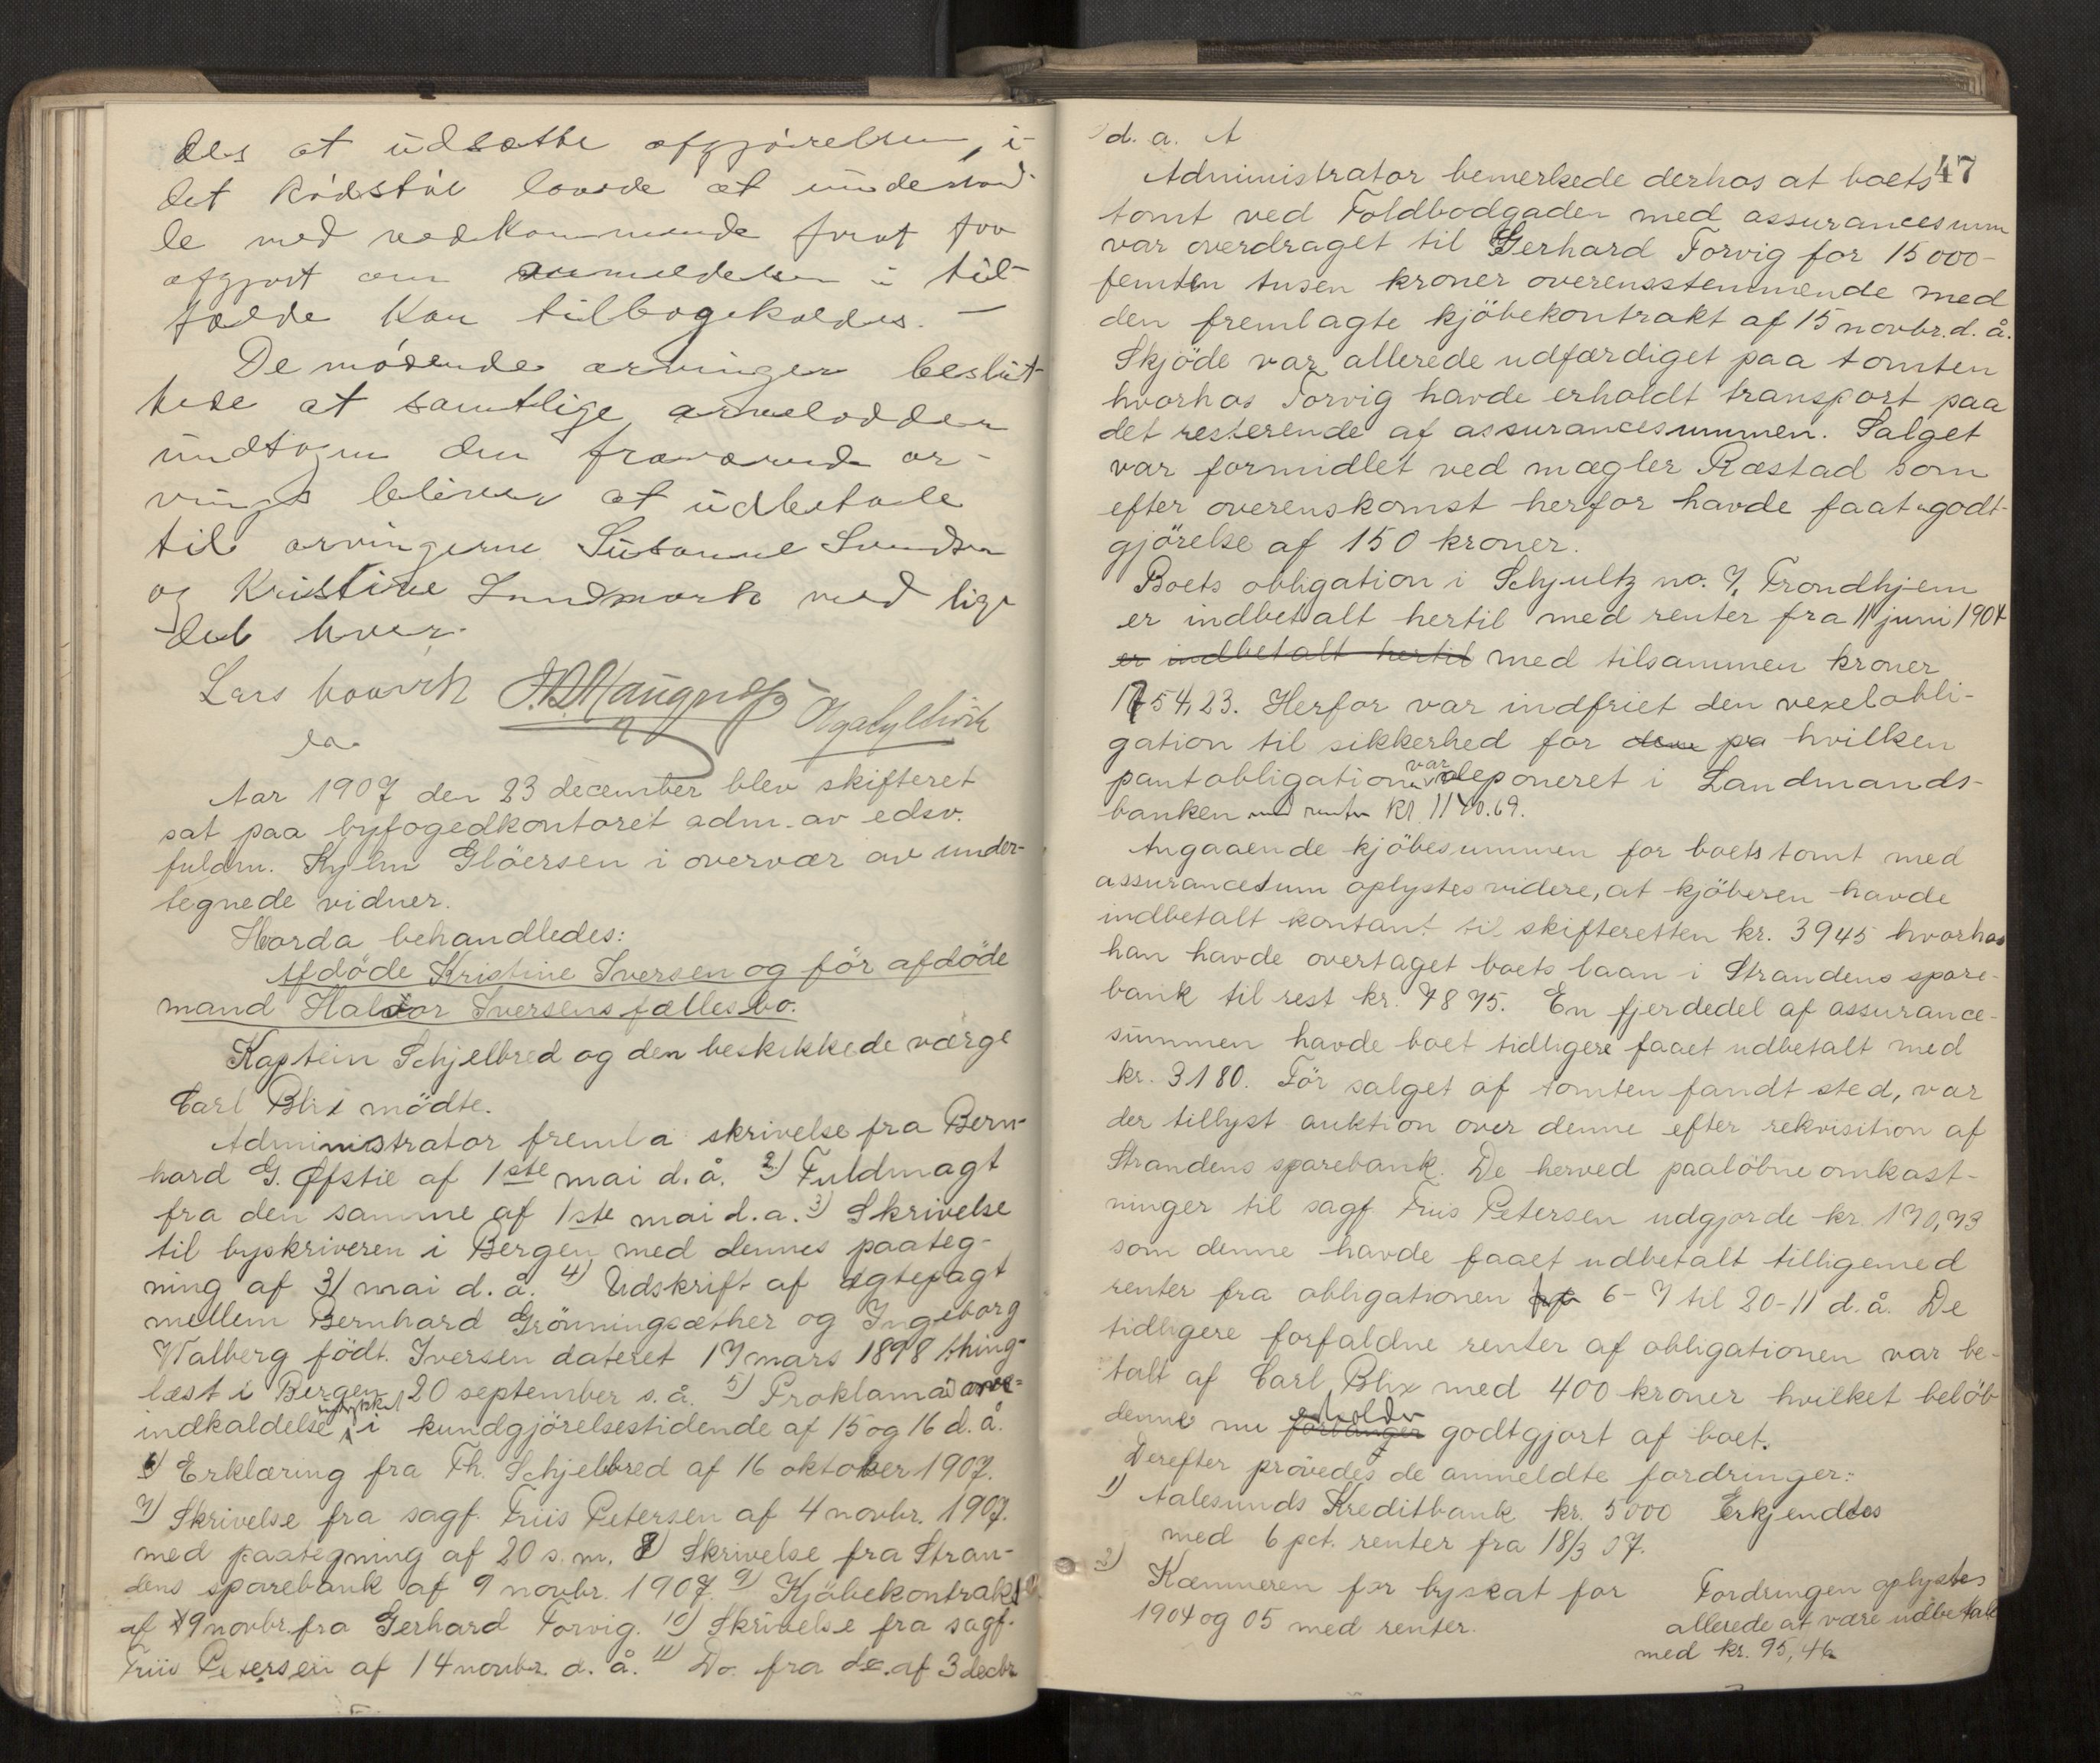 des at udsætte afgjørelsen, i-
det Rødstøl lovede at underhand-
le med vedkommende forat faa
afgjort om anmeldelsen i til-
fælde kan tilbagekaldes. —
De mødende arvinger beslut-
tede at samtlige arvelodder
undtagen den fraværende ar-
vings bliver at udbetale
til arvingerne Susanne Svendsen
og Kristine Landmark med lige
del hver.
Lars
Aar 1907 den 23 december blev skifteret
sat paa byfogedkontoret adm. av edsv.
fuldm. Hjelm Glöersen i overvær av under-
tegnede vidner.
Hvorda behandledes:
Afdöde Kristine Iversen og för afdöde
mand Haldor Iversens fællesbo.
Kaptein Schjelbred og den beskikkede værge
Carl Blix mödte.
Administrator fremla skrivelse fra Bern-
hard G. Øfstie af 1ste mai d. å. 2) Fuldmagt
fra den samme af 1ste mai d. a. 3) Skrivelse
til byskriveren i Bergen med dennes paateg-
ning af 31 mai d. å. 4) Udskrift af ægtepagt
mellem Bernhard Grönningsæther og Ingeborg
Walberg födt. Iversen dateret 17 mars 1898 thing-
læst i Bergen 20 september s. å. 5) Proklama
indkaldelse indrykket i kundgjörelsestidende af 15 og 16 d. å.
6) Erklæring fra Th. Schjelbred af 16 oktober 1907.
7) Skrivelse fra sagf. Friis Petersen af 4 novbr. 1907.
med paategning af 20 s. m. 8) Skrivelse fra Stran-
dens sparebank af 9 novbr. 1907. 9) Kjöbekontrakt
af 19 novbr. fra Gerhard Torvig. 10) Skrivelse fra sagf.
Friis Petersen af 14 novbr. d. å. 11) Do. fra do. af 3 decbr
d. a.
47
Administrator bemerkede derhos at boets
tomt ved Toldbodgaden med assurancesum
var overdraget til Gerhard Torvig for 15000-
femten tusen kroner overensstemmende med
den fremlagte kjöbekontrakt af 15 novbr. d. å.
Skjöde var allerede udfærdiget paa tomten
hvorhos Torvig havde erholdt transport paa
det resterende af assurancesummen. Salget
var formidlet ved mægler Ræstad som
efter overenskomst herfor havde faat godt-
gjörelse af 150 kroner.
Boets obligation i Schjultz no. 7, Trondhjem
er indbetalt hertil med renter fra 11 juni 1904
er indbetalt hertil med tilsammen kroner
1754,23. Herfor var indfriet den vexelobli-
gation til sikkerhed for hvilken
pantobligationen var deponeret i Landmands-
banken med renter kr. 1140.69.
Angaaende kjöbesummen for boets tomt med
assurancesum oplystes videre, at kjöberen havde
indbetalt kontant til skifteretten kr. 3945 hvorhos
han havde overtaget boets laan i Strandens spare-
bank til rest kr. 7875. En fjerdedel af assurance-
summen havde boet tidligere faaet udbetalt med
kr. 3180. För salget af tomten fandt sted, var
der tillyst auktion over denne efter rekvisition af
Strandens sparebank. De herved paalöbne omkost-
ninger til sagf. Friis Petersen udgjorde kr. 170,73
som denne havde faaet udbetalt tilligemed
renter fra obligationen 6-7 til 20-11 d. å. De
tidligere forfaldne renter af obligationen var be-
talt af Carl Blix med 400 kroner hvilket belöb
denne nu forlanger erholder godtgjort af boet.
Derefter prövedes de anmeldte fordringer:
1) Aalesunds Kreditbank kr. 5000 Erkjendtes
med 6 pct. renter fra 18/3 07.
2) Kæmneren for byskat for Fordringen oplystes
1904 og 05 med renter. allerede at være udbetalt
med kr. 95,46